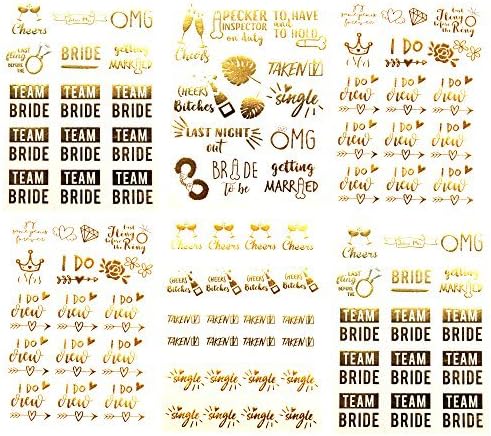 Cheers
OMG
LAST
fling
BEFORE THE
BRIDE
getting
MARRIED
TEAM TEAM TEAM
BRIDE BRIDE BRIDE
TEAM TEAM TEAM
BRIDE BRIDE BRIDE
TEAM TEAM TEAM
BRIDE BRIDE BRIDE
PECKER
INSPECTOR
on duty
TO HAVE
and
TO HOLD
Cheers
TAKEN
CHEERS
Bitches
single
LAST NIGHT
out
OMG
BRIDE
to be
getting
MARRIED
last
fling
before the
Ring
I DO
I DO I DO I DO
crew crew crew
I DO I DO I DO
crew crew crew
I DO I DO I DO
crew crew crew
last
fling
before the
Ring
I DO
I DO I DO I DO
crew crew crew
I DO I DO I DO
crew crew crew
I DO I DO I DO
crew crew crew
Cheers Cheers Cheers Cheers
CHEERS CHEERS CHEERS CHEERS
Bitches Bitches Bitches Bitches
TAKEN TAKEN TAKEN TAKEN
TAKEN TAKEN TAKEN TAKEN
single single single single
single single single single
Cheers
OMG
LAST
fling
BEFORE THE
BRIDE
getting
MARRIED
TEAM TEAM TEAM
BRIDE BRIDE BRIDE
TEAM TEAM TEAM
BRIDE BRIDE BRIDE
TEAM TEAM TEAM
BRIDE BRIDE BRIDE